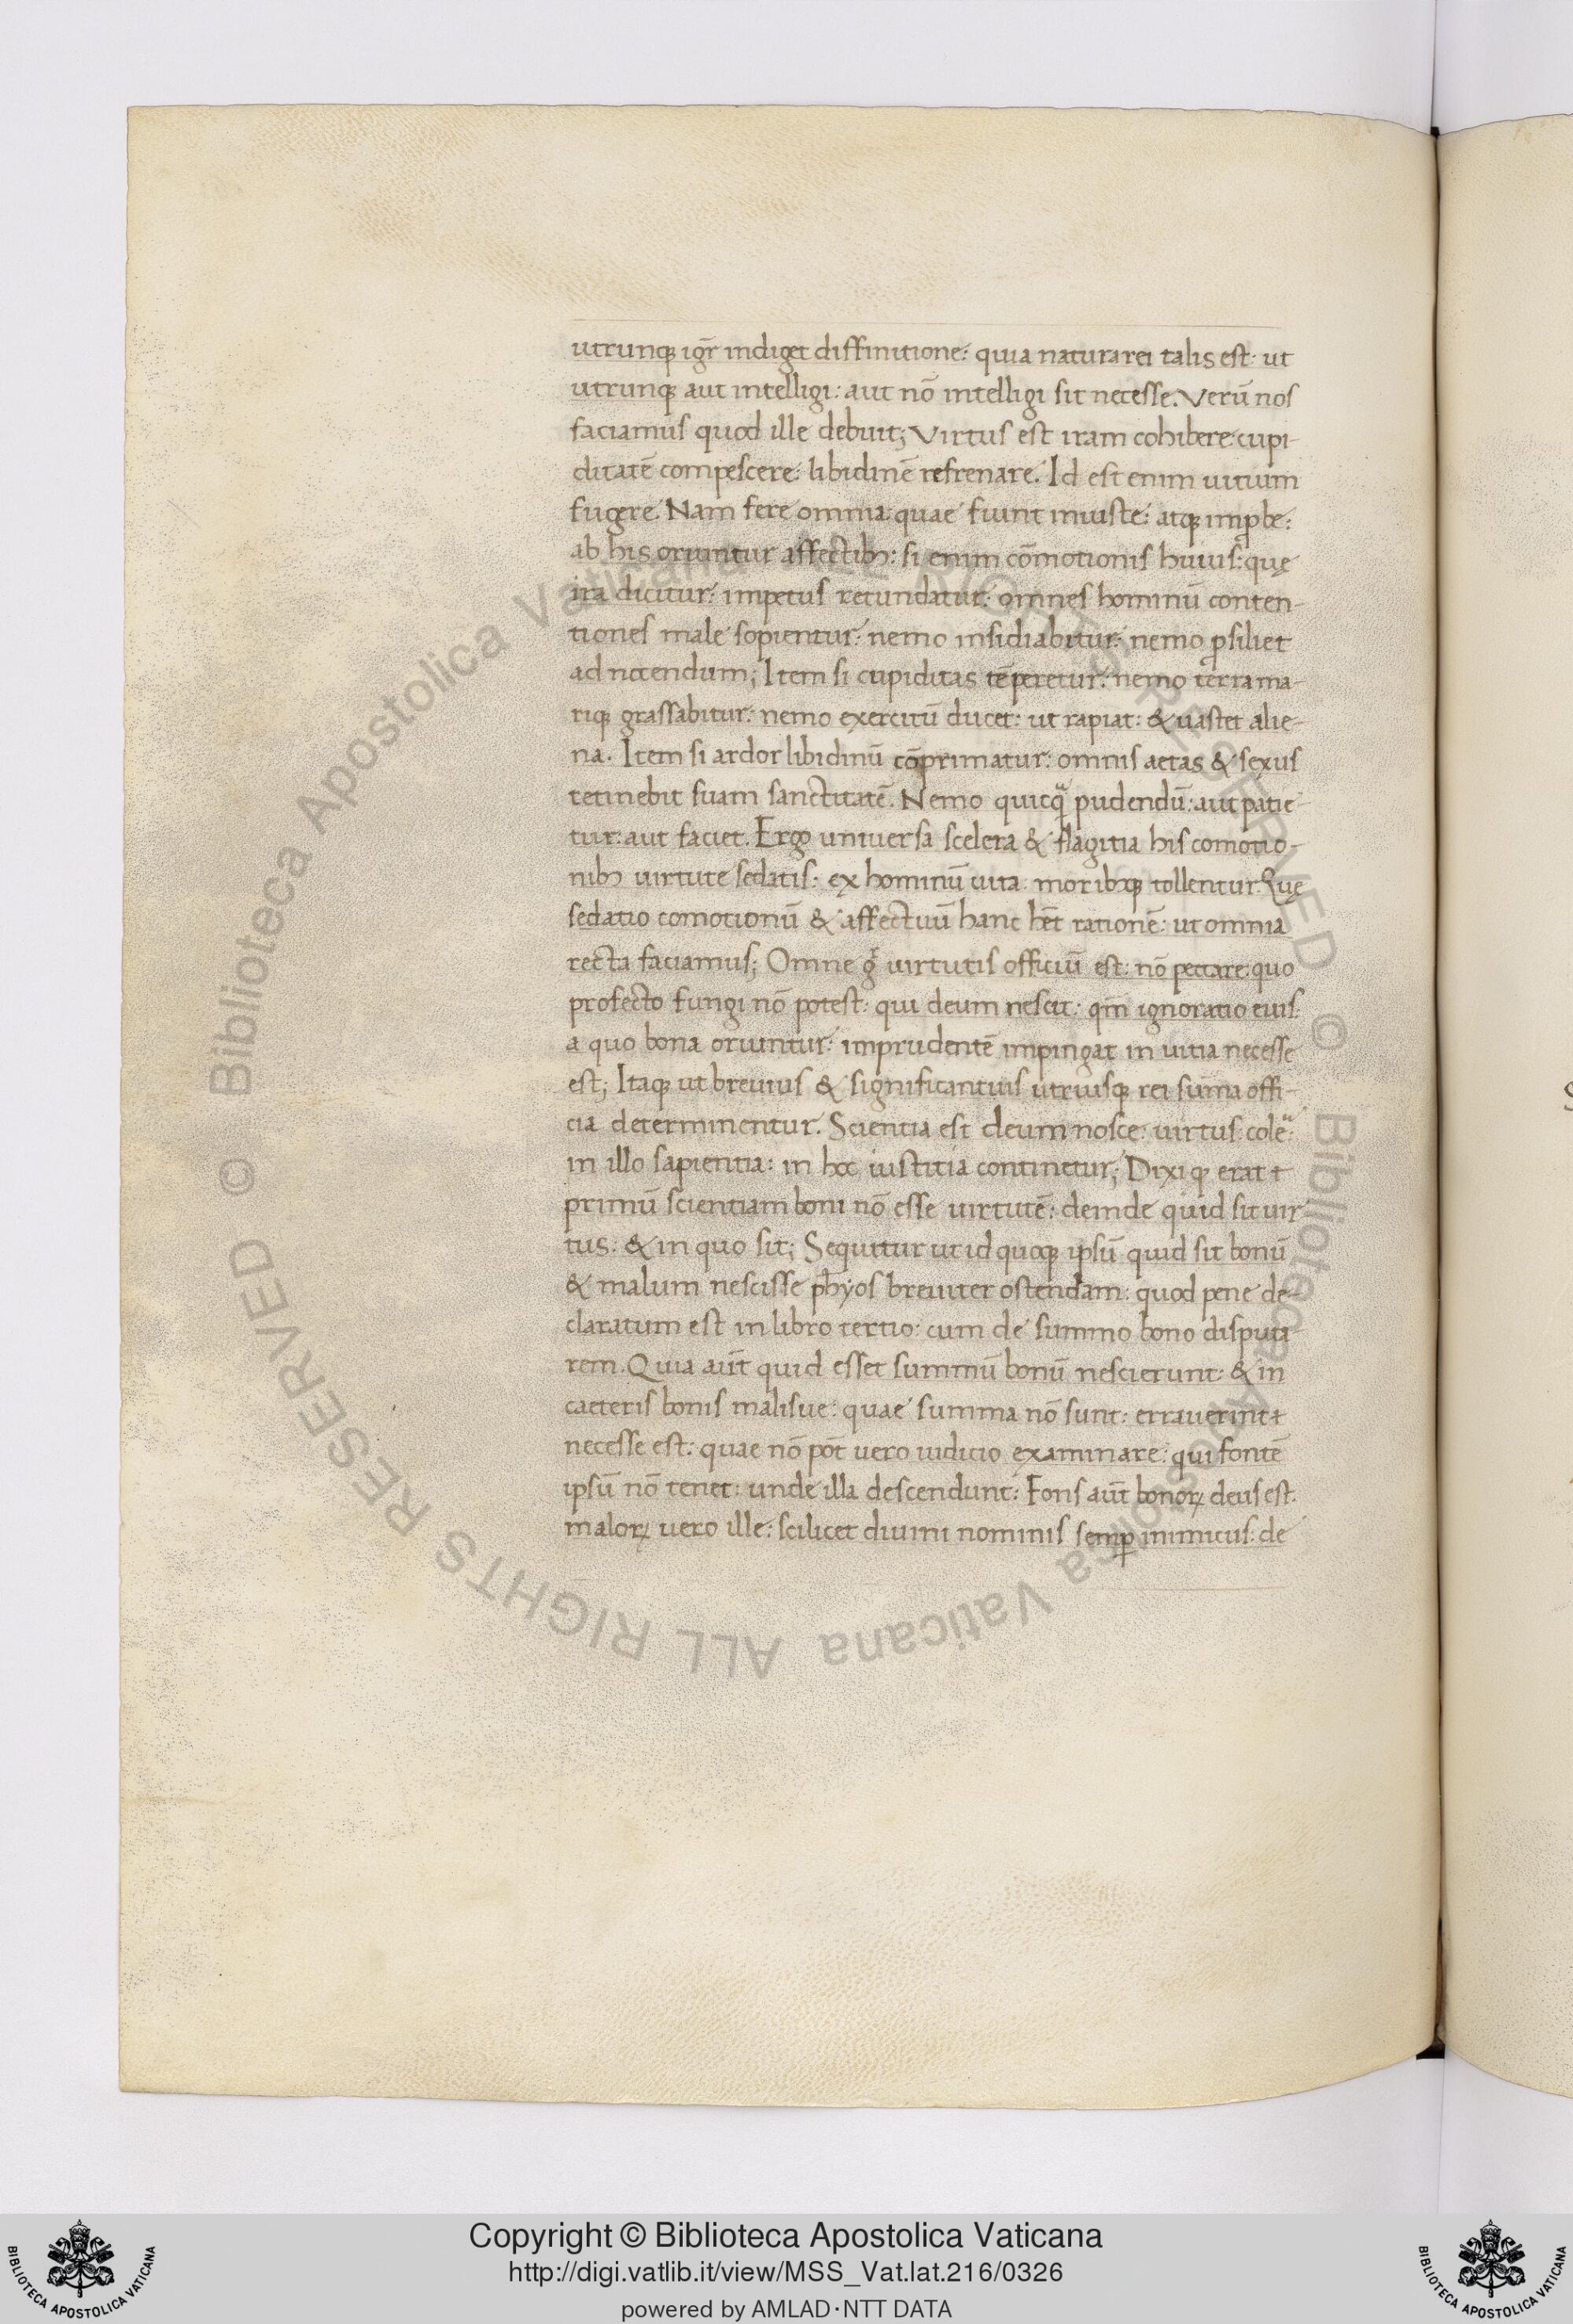 utrunq; igr̄ indiget diffinitione: quia natura rei talis est: ut
utrunq; aut intelligi: aut nō intelligi sit necesse. Verū nos
faciamus quod ille debuit; Virtus est iram cohibere: cupi-
ditatē compescere: libidinē refrenare. Id est enim uitium
fugere. Nam fere omnia: quae fiunt iniuste: atq; improbe:
ab his oriuntur affectib;: si enim cōmotionis huius: quę
ira dicitur: impetus retundatur: omnes hominū conten-
tiones male sopientur: nemo insidiabitur: nemo ꝓsiliet
ad nocendum; Item si cupiditas tēperetur: nemo terra ma-
riq; grassabitur: nemo exercitū ducet: ut rapiat: & uastet alie-
na. Item si ardor libidinū cōprimatur: omnis aetas & sexus
retinebit suam sanctitatē. Nemo quicq̄ pudendū: aut patie-
tur: aut faciet. Ergo uniuersa scelera & flagitia his comotio-
nib; uirtute sedatis: ex hominū uita moribq; tollentur. Quę
sedatio comotionū & affectuū hanc hēt rationē: ut omnia
recta faciamus; Omne gͬ uirtutis officiū est: nō peccare: quo
profecto fungi nō potest: qui deum nescit: qm̄ ignoratio eius:
a quo bona oriuntur: imprudentē impingat in uitia necesse
est; Itaq; ut breuius & significantius utriusq; rei suma offi-
cia determinentur. Scientia est deum nosce: uirtus: colē:
in illo sapientia: in hoc iustitia continetur; Dixi q; erat
primū scientiam boni nō esse uirtutē: deinde quid sit uir
tus: & in quo sit; Sequitur ut id quoq; ipsū quid sit bonū
& malum nescisse phӯos breuiter ostendam: quod pene de-
claratum est in libro tertio: cum de summo bono disputa-
rem. Quia aūt quid esset summū bonū nescierunt: & in
caeteris bonis malisue: quae summa nō sunt: errauerint
necesse est: quae nō pōt uero iudicio examinare: qui fontē
ipsū nō tenet: unde illa descendunt: Fons aūt bonoꝝ deus est.
maloꝝ uero ille: scilicet diuini nominis semꝑ inimicus: de
Copyright © Biblioteca Apostolica Vaticana
http://digi.vatlib.it/view/MSS_Vat.lat.216/0326
powered by AMLAD·NTT DATA
BIBLIOTECA APOSTOLICA VATICANA
BIBLIOTECA APOSTOLICA VATICANA
© Biblioteca Apostolica Vaticana ALL RIGHTS RESERVED © Biblioteca Apostolica Vaticana ALL RIGHTS RESERVED